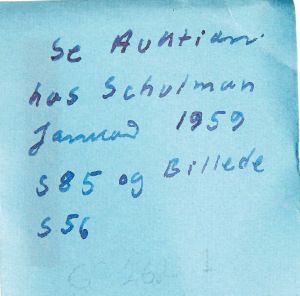 Se Auktion
hos Schulman
Januar 1959
S 85 og Billede
S 56